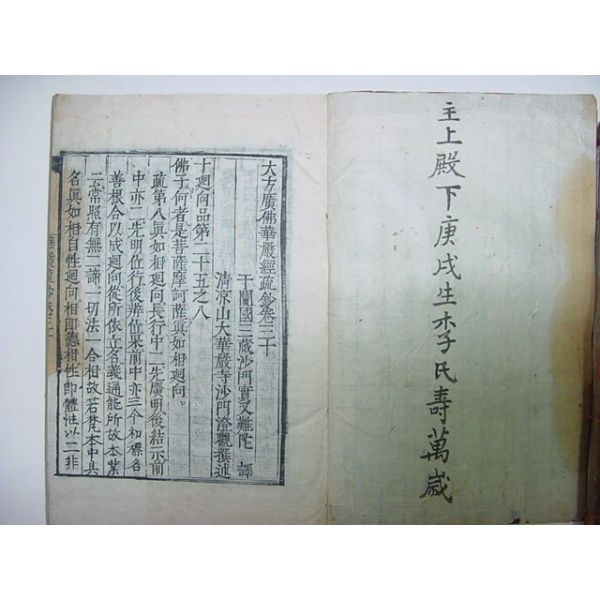 主上殿下庚戌生李氏壽萬歲
大方廣佛華嚴經疏鈔卷三十
于闐國三藏沙門實叉難陀 譯
清涼山大華嚴寺沙門澄觀撰述
十廻向品第二十五之八
佛子何者是菩薩摩訶薩眞如相廻向
疏第八眞如相廻向長行中二先廣明後結示前
中亦二先明位行後辦位果前中亦三今初標名
善根合以成廻向從所依立名義通能所故本業
云常照有無二諦一切法一合相故若梵本中具
名眞如相自性廻向相即德相性即體性以二非